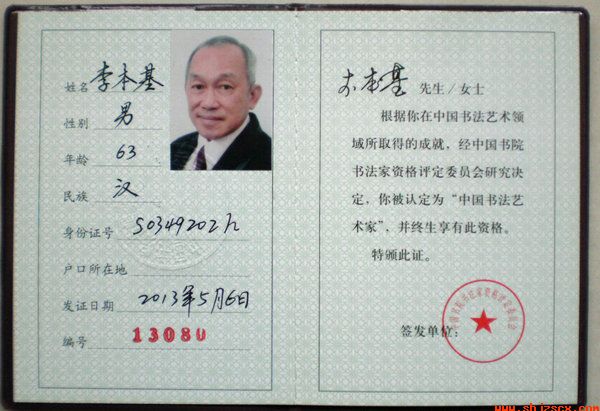 姓名 李本基
性别 男
年龄 63
民族 汉
身份证号
户口所在地
发证日期 2013年5月6日
编号 13080
本基 先生/女士
根据你在中国书法艺术领
域所取得的成就，经中国书院
书法家资格评定委员会研究决
定，你被认定为“中国书法艺
术家”，并终生享有此资格。
特颁此证。
签发单位：
www.shjzscx.com